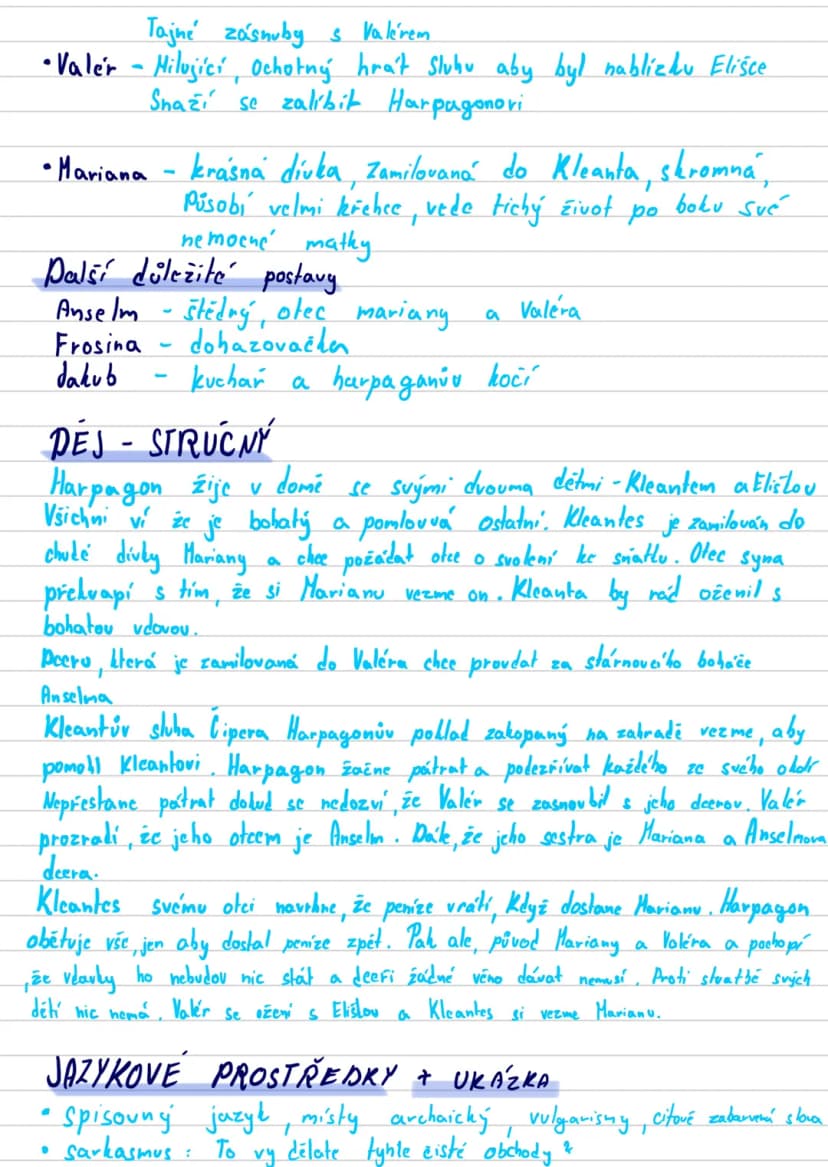 Tajné zásnuby s Valérem
• Valér – Milující, ochotný hrát sluhu aby byl nablízku Elišce
Snaží se zalíbit Harpagonovi
• Mariana – krásná dívka, zamilovaná do Kleanta, skromná,
Působí velmi křehce, vede tichý život po boku své
nemocné matky
Další důležité postavy
Anselm – štědrý, otec mariany a Valéra
Frosina – dohazovačka
Jakub – kuchař a harpagonův kočí
DĚJ – STRUČNÝ
Harpagon žije v domě se svými dvouma dětmi – Kleantem a Eliškou
Všichni ví že je bohatý a pomlouvá ostatní. Kleantes je zamilován do
chudé dívky Mariany a chce požádat otce o svolení ke sňatku. Otec syna
překvapí s tím, že si Marianu vezme on. Kleanta by rád oženil s
bohatou vdovou.
Dceru, která je zamilovaná do Valéra chce provdat za stárnoucího boháče
Anselma
Kleantův sluha Čipera Harpagonův poklad zakopaný na zahradě vezme, aby
pomohl Kleantovi. Harpagon začne pátrat a podezřívat každého ze svého okolí
Nepřestane pátrat dokud se nedozví, že Valér se zasnoubil s jeho dcerou. Valér
prozradí, že jeho otcem je Anselm. Dále, že jeho sestra je Mariana a Anselmova
dcera.
Kleantes svému otci navrhne, že peníze vrátí, Když dostane Marianu. Harpagon
obětuje vše, jen aby dostal peníze zpět. Pak ale, původ Mariany a Valéra a pochopí
, že vdavky ho nebudou nic stát a dceři žádné věno dávat nemusí. Proti svatbě svých
dětí nic nemá. Valér se ožení s Eliškou a Kleantes si vezme Marianu.
JAZYKOVÉ PROSTŘEDKY + UKÁZKA
• Spisovný jazyk, místy archaický, vulgarismy, citově zabarvená slova
• sarkasmus: To vy děláte tyhle čisté obchody?